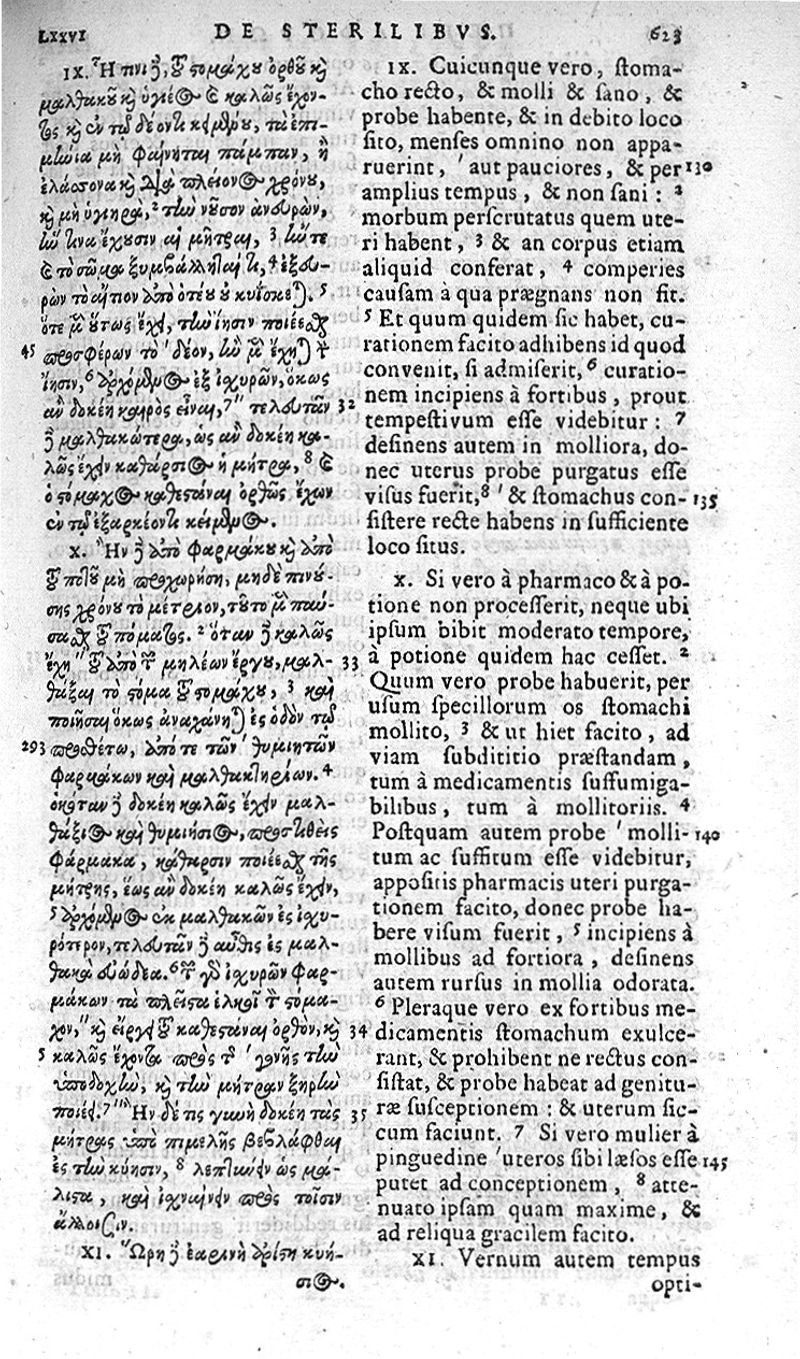 LXXVI
DE STERILIBVS.
623
IX. Ἢ πνι δὲ, τοῦ στομάχου ὀρθοῦ καὶ
μαλθακοῦ καὶ ὑγιέος καὶ καλῶς ἔχον-
τος καὶ ἐν τῷ δέοντι κειμένου, τὰ ἐπι-
μήνια μὴ φαίνηται πάμπαν, ἢ
ἐλάσσονα καὶ διὰ πλείονος χρόνου,
καὶ μὴ ὑγιηρὰ, 2 τὴν νοῦσον ἀνευρὼν,
ἥν τινα ἔχουσιν αἱ μῆτραι, 3 ἤν τε
καὶ τὸ σῶμα ξυμβάλληταί τι, 4 ἐξευ-
ρὼν τὸ αἴτιον ἀπὸ ὁτέου οὐ κυΐσκεται. 5
ὅτε μὲν οὕτως ἔχει, τὴν ἴησιν ποιέεσθαι
45 προσφέρων τὸ δέον, ἢν μὲν ἔχηται τὴν
ἴησιν, 6 ἀρχόμενος ἐξ ἰχυρῶν, ὅκως
ἂν δοκέη καιρὸς εἶναι, 7 " τελευτᾶν 32
δὲ μαλθακώτερα, ὡς ἂν δοκέη κα-
λῶς ἔχειν καθάρσιος ἡ μήτρα, 8 καὶ
ὁ στόμαχος καθεστάναι ὀρθῶς ἔχων
ἐν τῷ ἐξαρκέοντι κείμενος.
X. Ἢν δὲ ἀπὸ φαρμάκου καὶ ἀπὸ
τοῦ ποτοῦ μὴ προχωρήση, μηδὲ πινού-
σης χρόνου τὸ μέτριον, τούτου μὲν παύ-
σασθαι τοῦ πόματος. 2 ὅταν δὲ καλῶς
ἔχη " τοῦ ἀπὸ τῶν μηλέων ἔργου, μαλ- 33
θάξαι τὸ στόμα τοῦ στομάχου, 3 καὶ
ποιῆσαι ὅκως ἀναχανῆται ἐς ὁδὸν τῷ
293 προσθέτῳ, ἀπό τε τῶν θυμιητῶν
φαρμάκων καὶ μαλθακτηρίων. 4
ὁκόταν δὲ δοκέη καλῶς ἔχειν μαλ-
θάξιος καὶ θυμιήσιος, προστιθεὶς
φάρμακα, κάθαρσιν ποιέεσθαι τῆς
μήτρης, ἕως ἂν δοκέη καλῶς ἔχειν,
5 ἀρχόμενος ἐκ μαλθακῶν ἐς ἰχυ-
ρότερον, τελευτᾶν δὲ αὖθις ἐς μαλ-
θακὰ εὐώδεα. 6 τῶν γὰρ ἰχυρῶν φαρ-
μάκων τὰ πλεῖστα ἑλκοῖ τὸν στόμα-
χον, " καὶ εἴργει τοῦ καθεστάναι ὀρθὸν, καὶ 34
5 καλῶς ἔχοντα πρὸς τῆς γονῆς τὴν
ὑποδοχὴν, καὶ τὴν μήτραν ξηρὴν
ποιέει. 7 " Ἢν δέ τις γυνὴ δοκέη τὰς 35
μήτρας ὑπὸ πιμελῆς βεβλάφθαι
ἐς τὴν κύησιν, 8 λεπτύνειν ὡς μά-
λιστα, καὶ ἰχναίνειν πρὸς τοῖσιν
ἄλλοισιν.
XI. Ὥρη δὲ ἐαρινὴ ἀρίστη κυή-
σιος.
IX. Cuicunque vero, stoma-
cho recto, & molli & sano, &
probe habente, & in debito loco
sito, menses omnino non appa-
ruerint, ' aut pauciores, & per 130
amplius tempus, & non sani : 2
morbum perscrutatus quem ute-
ri habent, 3 & an corpus etiam
aliquid conferat, 4 comperies
causam à qua prægnans non fit.
5 Et quum quidem sic habet, cu-
rationem facito adhibens id quod
convenit, si admiserit, 6 curatio-
nem incipiens à fortibus, prout
tempestivum esse videbitur : 7
desinens autem in molliora, do-
nec uterus probe purgatus esse
visus fuerit, 8 ' & stomachus con- 135
sistere recte habens in sufficiente
loco situs.
X. Si vero à pharmaco & à po-
tione non processerit, neque ubi
ipsum bibit moderato tempore,
à potione quidem hac cesset. 2
Quum vero probe habuerit, per
usum specillorum os stomachi
mollito, 3 & ut hiet facito, ad
viam subdititio præstandam,
tum à medicamentis suffumiga-
bilibus, tum à mollitoriis. 4
Postquam autem probe ' molli- 140
tum ac suffitum esse videbitur,
appositis pharmacis uteri purga-
tionem facito, donec probe ha-
bere visum fuerit, 5 incipiens à
mollibus ad fortiora, desinens
autem rursus in mollia odorata.
6 Pleraque vero ex fortibus me-
dicamentis stomachum exulce-
rant, & prohibent ne rectus con-
sistat, & probe habeat ad genitu-
ræ susceptionem : & uterum sic-
cum faciunt. 7 Si vero mulier à
pinguedine ' uteros sibi læsos esse 145
putet ad conceptionem, 8 atte-
nuato ipsam quam maxime, &
ad reliqua gracilem facito.
XI. Vernum autem tempus
opti-